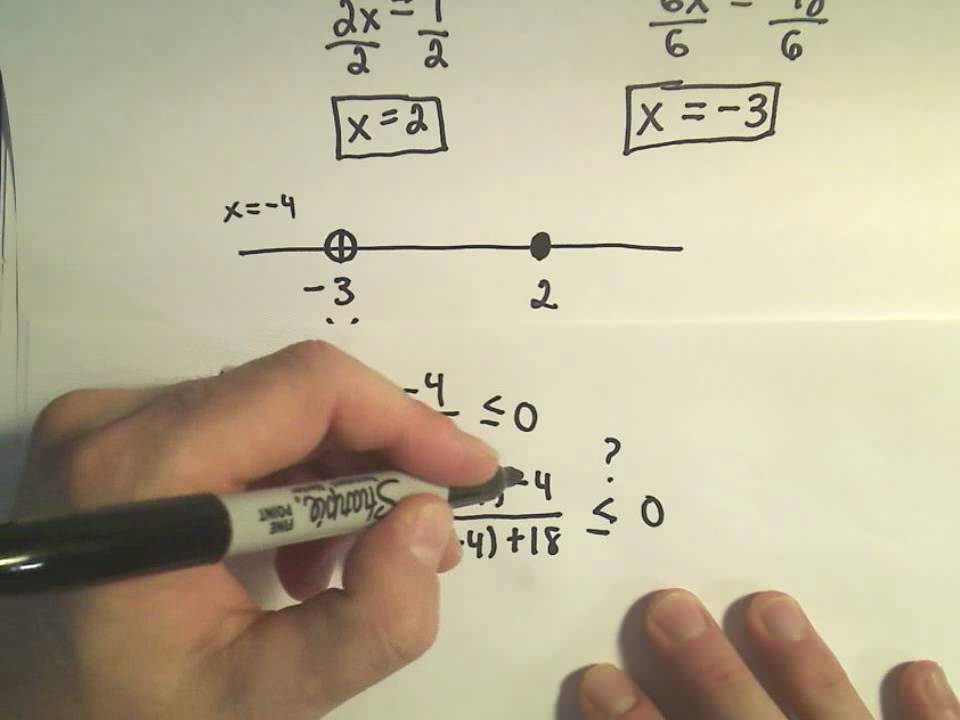 2x = 
2 2
6x = 
6 6
x = 2
x = -3
x = -4
-3 2
-4 ≤ 0
?
-4 ≤ 0
4) + 18
Sharpie.
FINE POINT